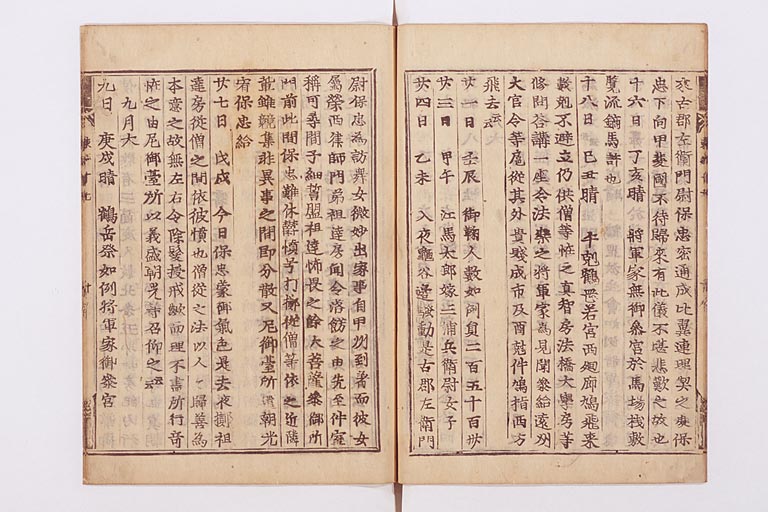 於古郡左衛門尉保忠密通成比翼連理契之處保
忠下向甲斐國不待歸來有此儀不堪悲歎之故也
十六日 丁亥晴 將軍家無御參宮於馬塲栈敷
覽流鏑馬許也
十八日 己丑晴 午剋鶴岡若宮西廻廊鳩飛来
數剋不避立仍供僧等恠之真智房法橋大學房等
修問答講一座令法樂之將軍家為見聞參給遠州
大官令等扈從其外貴賤成市及酉尅件鳩指西方
飛去云々
廿一日 壬辰 御鞠人數如例員二百五十百廿
廿三日 甲午 江馬太郎嫁三浦兵衛尉女子
廿四日 乙未 入夜龜谷邊騒動是古郡左衛門
尉保忠為訪舞女微妙出家事自甲州到著而彼女
屬榮西律師門弟祖達房令落餝之由先至件室
稱可尋問子細誓盟祖達怖畏之餘入善道參御所
門前此間保忠難休欝憤打擲從僧等依之近隣
輩雖競集非異事之間即分散又尼御臺所遣朝光
宥保忠給
廿七日 戊戌 今日保忠蒙御氣色是去夜擲祖
達房從僧之間依彼憤也僧從之法以人之歸善為
本意之故無左右令除髮授戒歟而理不盡所行奇
恠之由尼御臺所以義盛朝光等召仰之云々
九月大
九日 庚戌晴 鶴岳祭如例將軍家御參宮